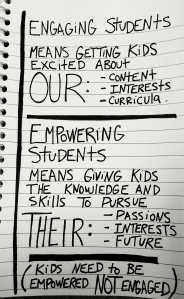 ENGAGING STUDENTS
MEANS GETTING KIDS
EXCITED ABOUT
OUR: - CONTENT
- INTERESTS
- CURRICULA.
EMPOWERING
STUDENTS
MEANS GIVING KIDS
THE KNOWLEDGE AND
SKILLS TO PURSUE
THEIR: - PASSIONS
- INTERESTS
- FUTURE
(KIDS NEED TO BE
EMPOWERED NOT ENGAGED)